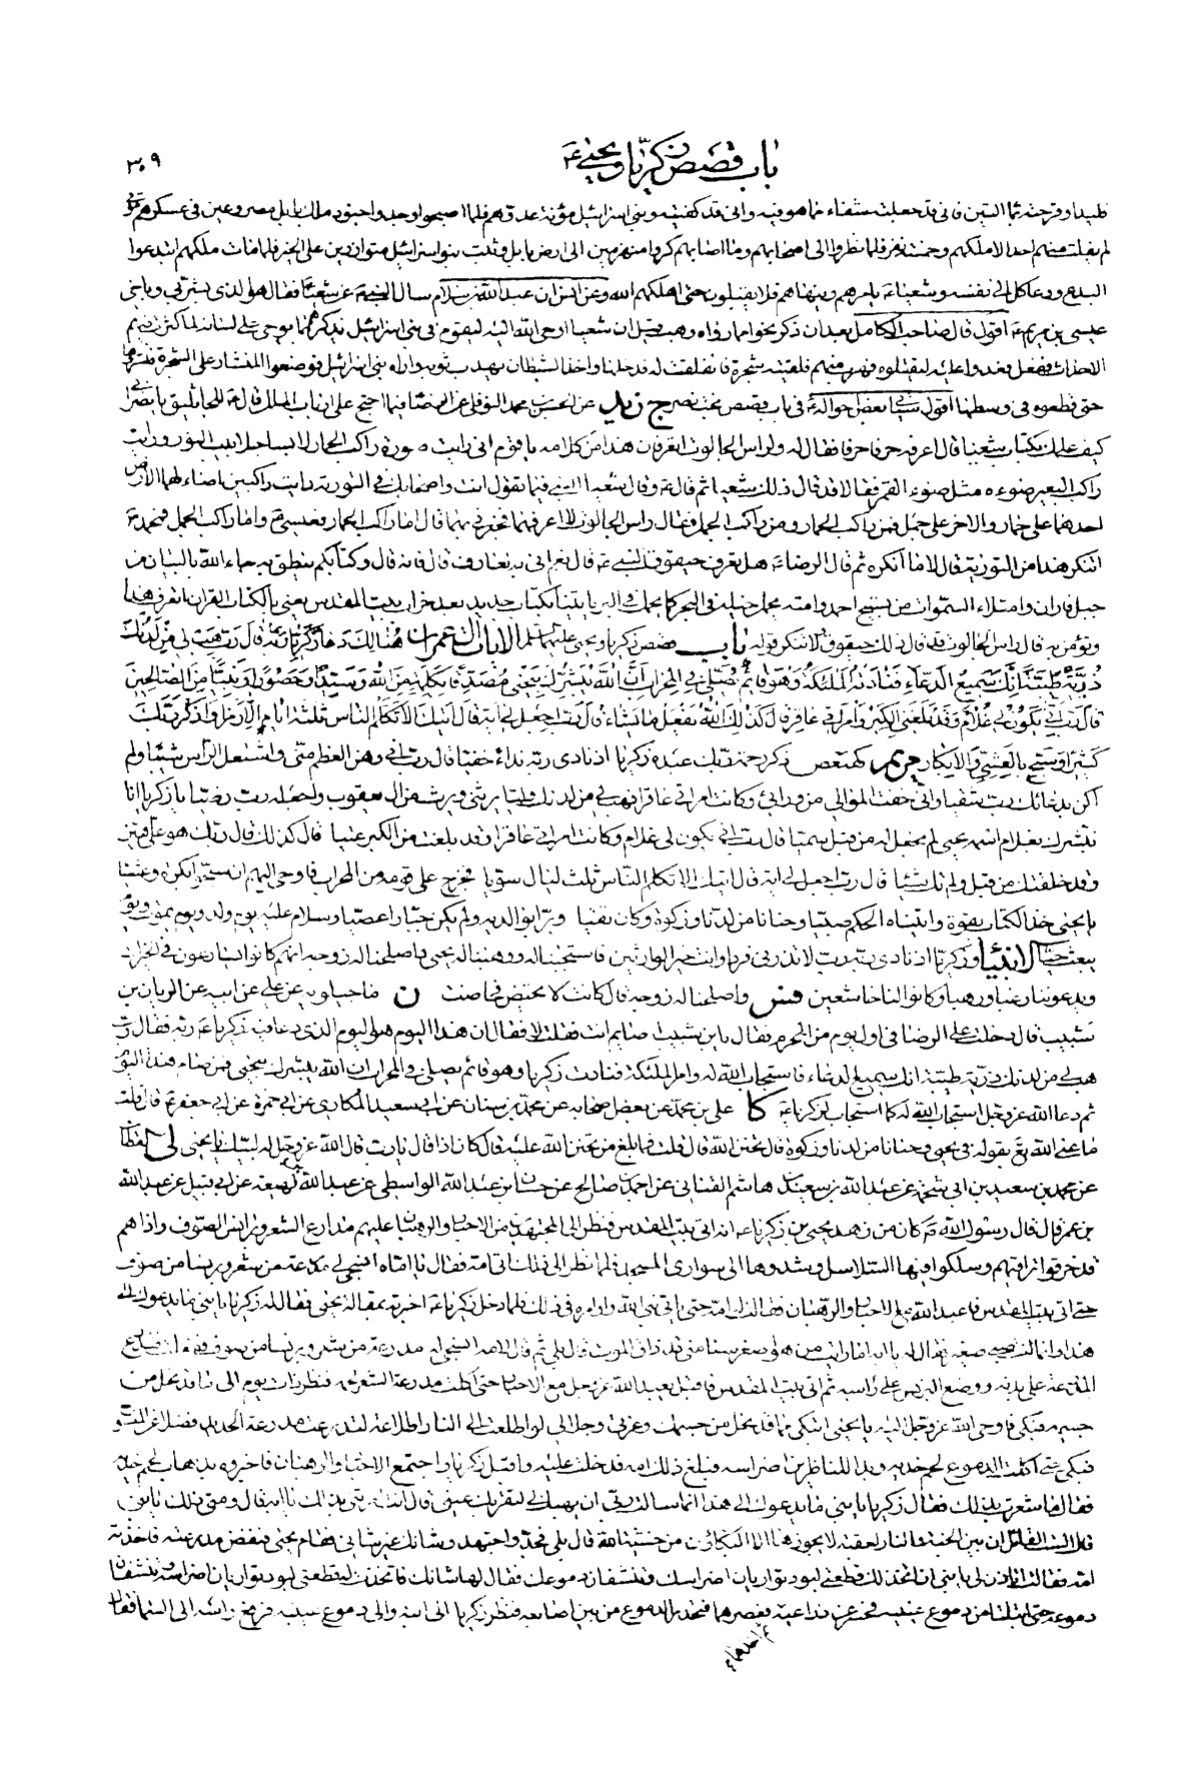 باب قصص زكريا ويحيى ع ٣٠٩
فليداو قرحته بماء التين فاني قد جعلت شفاء مما هو فيه واني قد كفيته وبني اسرائيل مؤنة عدوهم فلما اصبحوا وجدوا جنود ملك بابل مصروعين في عسكرهم موتى
لم يفلت منهم احد الا ملكهم وخمسة نفر فلما نظروا الى اصحابهم وما اصابهم كروا منهزمين الى ارض بابل وثبت بنو اسرائيل متوازرين على الخير فلما مات ملكهم ابتدعوا
البدع ودعا كل الى نفسه وشعيا ع يامرهم وينهاهم فلا يقبلون حتى اهلكهم الله وعن انس ان عبد الله بن سلام سال النبي ص عن شعيا فقال هو الذي بشر بي وباخي
عيسى بن مريم ع اقول قال صاحب الكامل بعد ان ذكر نحوا مما رواه وهب قيل ان شعيا اوحى الله اليه ليقوم في بني اسرائيل يذكرهم بما يوحي على لسانه لما كثرت فيهم
الاحداث ففعل فعدوا عليه ليقتلوه فهرب منهم فلقيته شجرة فانفلقت له فدخلها واخذ الشيطان بهدب ثوبه واراه بني اسرائيل فوضعوا المنشار على الشجرة فنشروها
حتى قطعوه في وسطها اقول سياتي بعض احواله ع في باب قصص بخت نصر ج يد عن الحسن بن محمد النوفلي عن الرضا ع فيما احتج على ارباب الملل قال ع للجاثليق يا نصراني
كيف علمك بكتاب شعيا قال اعرفه حرفا حرفا فقال له ولراس الجالوت اتعرفان هذا من كلامه يا قوم اني رايت صورة راكب الحمار لابسا جلابيب النور ورايت
راكب البعير ضوءه مثل ضوء القمر فقالا قد قال ذلك شعيا ثم قال ع وقال شعيا النبي فيما تقول انت واصحابك في التورية رايت راكبين اضاء لهما الارض
احدهما على حمار والاخر على جمل فمن راكب الحمار ومن راكب الجمل فقال راس الجالوت لا اعرفهما فخبرني بهما قال اما راكب الحمار فعيسى ع واما راكب الجمل فمحمد ص
اتنكر هذا من التورية قال لا ما انكره ثم قال الرضا ع هل تعرف حيقوق النبي ع قال نعم اني به لعارف قال فانه قال وكتابكم ينطق به جاء الله بالبيان من
جبل فاران وامتلاء السموات من تسبيح احمد وامته يحمل خيله في البحر كما يحمل في البر ياتينا بكتاب جديد بعد خراب بيت المقدس يعني بالكتاب القران اتعرف هذا
وتؤمن به قال راس الجالوت قد قال ذلك حيقوق ولا ننكر قوله باب قصص زكريا ويحيى عليهما السلام الايات ال عمران هنالك دعا زكريا ربه قال رب هب لي من لدنك
ذرية طيبة انك سميع الدعاء فنادته الملئكة وهو قائم يصلي في المحراب ان الله يبشرك بيحيى مصدقا بكلمة من الله وسيدا وحصورا ونبيا من الصالحين
قال رب انى يكون لي غلام وقد بلغني الكبر وامراتي عاقر قال كذلك الله يفعل ما يشاء قال رب اجعل لي اية قال ايتك الا تكلم الناس ثلثة ايام الا رمزا واذكر ربك
كثيرا وسبح بالعشي والابكار مريم كهيعص ذكر رحمة ربك عبده زكريا اذ نادى ربه نداء خفيا قال رب اني وهن العظم مني واشتعل الراس شيبا ولم
اكن بدعائك رب شقيا واني خفت الموالي من ورائي وكانت امراتي عاقرا فهب لي من لدنك وليا يرثني ويرث من ال يعقوب واجعله رب رضيا يا زكريا انا
نبشرك بغلام اسمه يحيى لم نجعل له من قبل سميا قال رب انى يكون لي غلام وكانت امراتي عاقرا وقد بلغت من الكبر عتيا قال كذلك قال ربك هو علي هين
وقد خلقتك من قبل ولم تك شيئا قال رب اجعل لي اية قال ايتك الا تكلم الناس ثلث ليال سويا فخرج على قومه من المحراب فاوحى اليهم ان سبحوا بكرة وعشيا
يا يحيى خذ الكتاب بقوة واتيناه الحكم صبيا وحنانا من لدنا وزكوة وكان تقيا وبرا بوالديه ولم يكن جبارا عصيا وسلام عليه يوم ولد ويوم يموت ويوم
يبعث حيا الانبياء وزكريا اذ نادى ربه رب لا تذرني فردا وانت خير الوارثين فاستجبنا له ووهبنا له يحيى واصلحنا له زوجه انهم كانوا يسارعون في الخيرات
ويدعوننا رغبا ورهبا وكانوا لنا خاشعين فس واصلحنا له زوجه قال كانت لا تحيض فحاضت ن ماجيلويه عن علي عن ابيه عن الريان بن
شبيب قال دخلت على الرضا في اول يوم من المحرم فقال يا بن شبيب اصايم انت فقلت لا فقال ان هذا اليوم هو اليوم الذي دعا فيه زكريا ع ربه فقال رب
هب لي من لدنك ذرية طيبة انك سميع الدعاء فاستجاب الله له وامر الملئكة فنادت زكريا وهو قائم يصلي في المحراب ان الله يبشرك بيحيى فمن صام هذا اليوم
ثم دعا الله عز وجل استجاب الله له كما استجاب لزكريا ع كا علي بن محمد عن بعض اصحابه عن محمد بن سنان عن ابي سعيد المكاري عن ابي حمزة عن ابي جعفر ع قال قلت
ما عنى الله تع بقوله في يحيى وحنانا من لدنا وزكوة قال تحنن الله قال قلت فما بلغ من تحنن الله عليه قال كان اذا قال يا رب قال الله عز وجل له لبيك يا يحيى لي القطان
عن محمد بن سعيد بن ابي شحمة عن عبد الله بن سعيد بن هاشم القناني عن احمد بن صالح عن حسان بن عبد الله الواسطي عن عبد الله بن لهيعة عن ابي قبيل عن عبد الله
بن عمر قال قال رسول الله ص كان من زهد يحيى بن زكريا ع انه اتى بيت المقدس فنظر الى المجتهدين من الاحبار والرهبان عليهم مدارع الشعر وبرانس الصوف واذا هم
قد خرقوا تراقيهم وسلكوا فيها السلاسل وشدوها الى سواري المسجد فلما نظر الى ذلك اتى امه فقال يا اماه انسجي لي مدرعة من شعر وبرنسا من صوف
حتى اتي بيت المقدس فاعبد الله مع الاحبار والرهبان فقالت له امه حتى ياتي نبي الله واؤامره في ذلك فلما دخل زكريا ع اخبرته بمقالة يحيى فقال له زكريا يا بني ما يدعوك الى
هذا وانما انت صبي صغير فقال له يا ابه اما رايت من هو اصغر سنا مني قد ذاق الموت قال بلى ثم قال لامه انسجي له مدرعة من شعر وبرنسا من صوف ففعلت فتدرع
المدرعة على بدنه ووضع البرنس على راسه ثم اتى بيت المقدس فاقبل يعبد الله عز وجل مع الاحبار حتى اكلت مدرعة الشعر لحمه فنظر ذات يوم الى ما قد نحل من
جسمه فبكى فاوحى الله عز وجل اليه يا يحيى اتبكي مما قد نحل من جسمك وعزتي وجلالي لو اطلعت الى النار اطلاعة لتدرعت مدرعة الحديد فضلا عن المنسوج
فبكى حتى اكلت الدموع لحم خديه وبدا للناظرين اضراسه فبلغ ذلك امه فدخلت عليه واقبل زكريا واجتمع الاحبار والرهبان فاخبروه بذهاب لحم خديه
فقال ما شعرت بذلك فقال زكريا يا بني ما يدعوك الى هذا انما سالت ربي ان يهبك لي لتقر بك عيني قال انت امرتني بذلك يا ابه قال ومتى ذلك يا بني
قال الست القائل ان بين الجنة والنار لعقبة لا يجوزها الا البكاؤن من خشية الله قال بلى فجد واجتهد وشانك غير شاني فقام يحيى فنفض مدرعته فاخذته
امه فقالت اتاذن لي يا بني ان اتخذ لك قطعتي لبود تواريان اضراسك وتنشفان دموعك فقال لها شانك فاتخذت له قطعتي لبود تواريان اضراسه وتنشفان
دموعه حتى ابتلتا من دموع عينيه فحسر عن ذراعيه ثم عصرهما فتحدر الدموع من بين اصابعه فنظر زكريا الى ابنه والى دموع عينيه فرفع راسه الى السماء فقال
ثم اخذهما